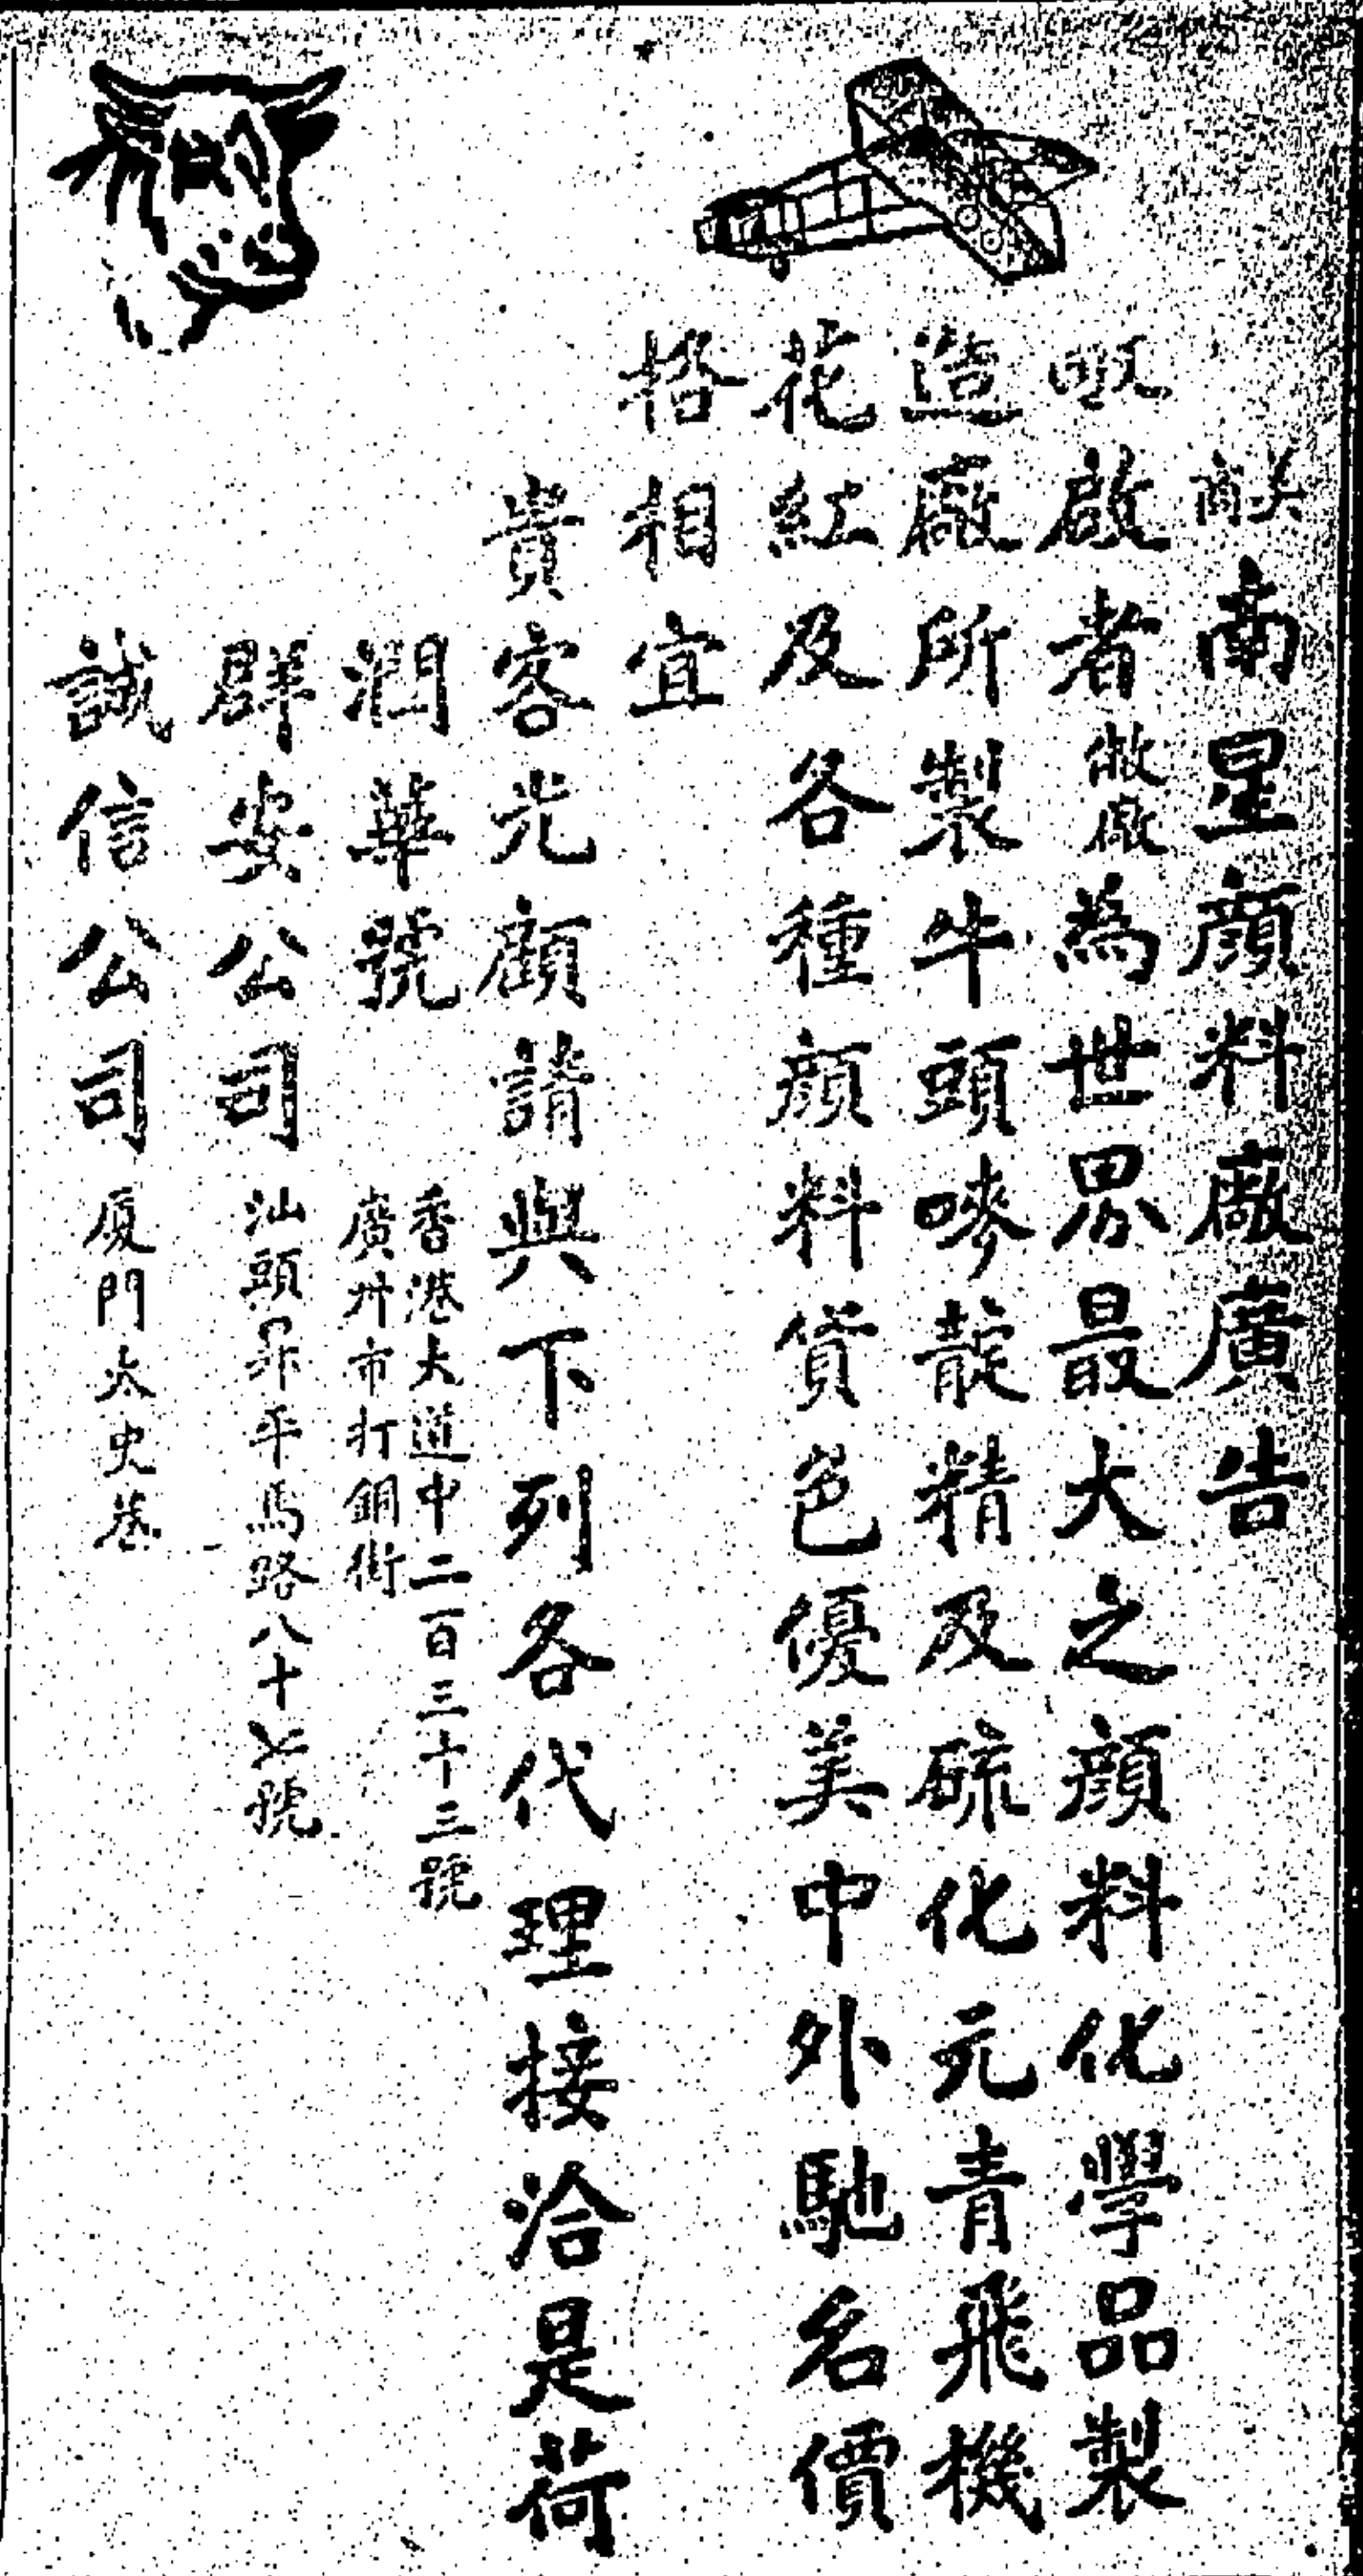 商南星顏料廠廣告
啟者敝廠為世界最大之顏料化學品製
造廠所製牛頭嘜靛精及硫化元青飛機
花紅及各種顏料貨色優美中外馳名價
格相宜
貴客光顧請與下列各代理接洽是荷
潤華號
香港大道中二百三十三號
廣州市打銅街
群安公司 汕頭昇平馬路八十七號
誠信公司 廈門太史巷